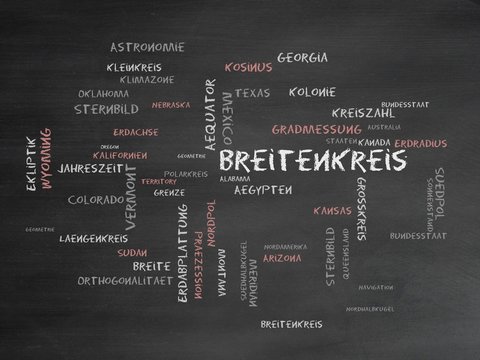 ASTRONOMIE
GEORGIA
KLEINKREIS
KOSINUS
KLIMAZONE
OKLAHOMA
TEXAS
KOLONIE
STERNBILD
NEBRASKA
AEQUATOR
MEXICO
BUNDESSTAAT
KREISZAHL
ERDACHSE
GRADMESSUNG
AUSTRALIA
EKLIPTIK
WYOMING
OREGON
STAATEN
KANADA
ERDRADIUS
KALIFORNIEN
GEOMETRIE
BREITENKREIS
JAHRESZEIT
POLARKREIS
ALABAMA
TERRITORY
GRENZE
AEGYPTEN
SUEDPOL
SONNENSTAND
COLORADO
VERMONT
GROSSKREIS
KANSAS
GEOMETRIE
LAENGENKREIS
ERDABPLATTUNG
PRAEZESSION
NORDPOL
MONTANA
SUEDHALBKUGEL
MERIDIAN
NORDAMERIKA
ARIZONA
STERNBILD
QUEENSLAND
BUNDESSTAAT
SUDAN
BREITE
ORTHOGONALITAET
NAVIGATION
NORDHALBKUGEL
BREITENKREIS